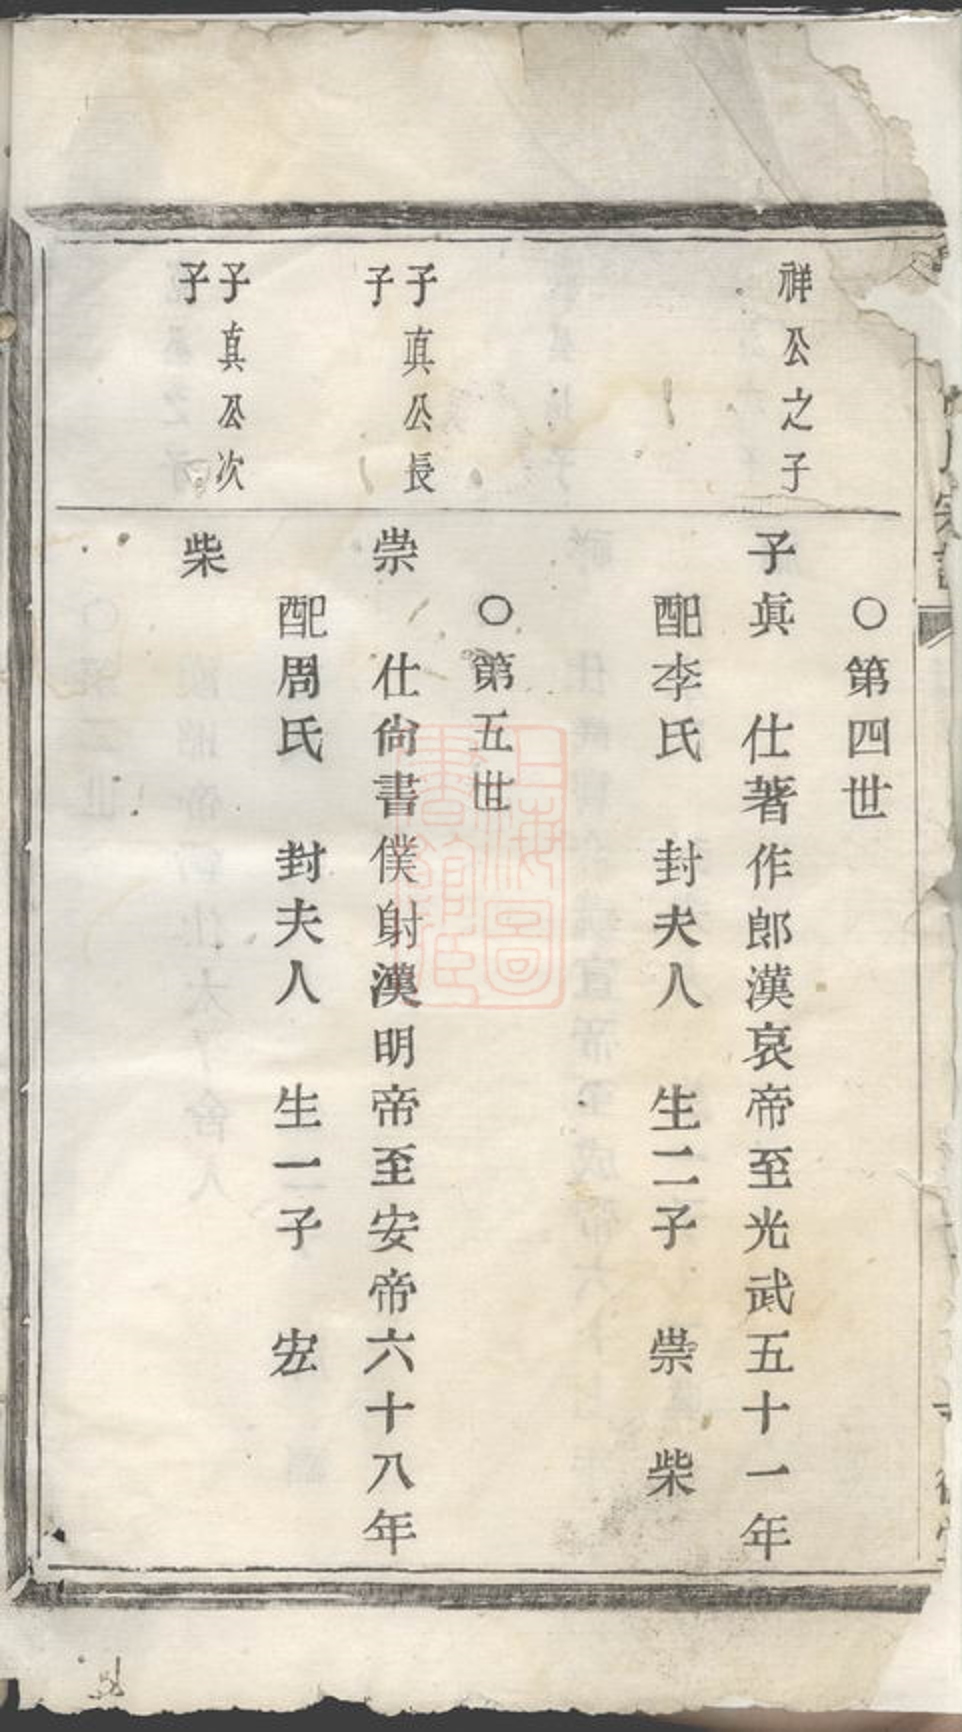 〇第四世
祥公之子
子眞 仕著作郎漢哀帝至光武五十一年
配李氏 封夫人 生二子 崇 柴
〇第五世
子真公長
子
崇 仕尙書僕射漢明帝至安帝六十八年
配周氏 封夫人 生一子 宏
子真公次
子
柴
上海圖
書館藏